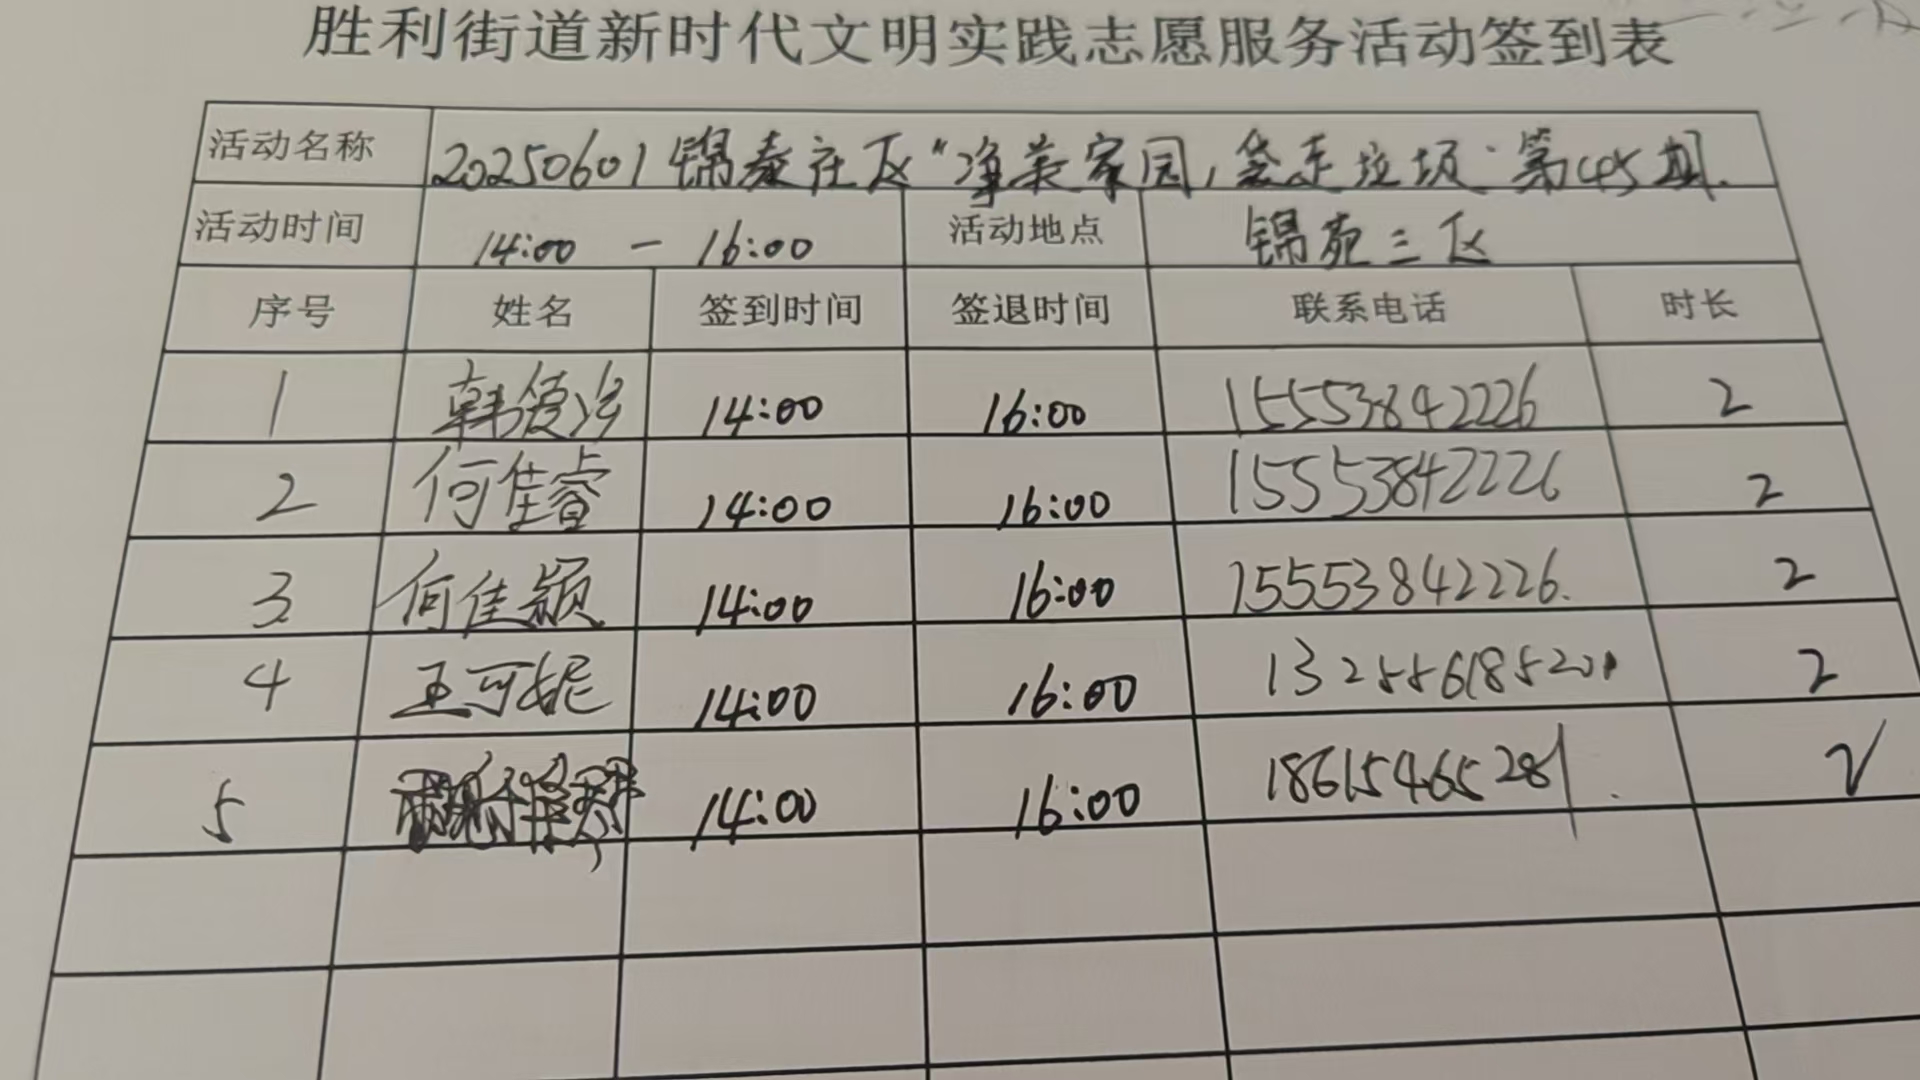 胜利街道新时代文明实践志愿服务活动签到表
活动名称 20250601锦泰社区“净美家园,袋走垃圾”第45期.
活动时间 14:00 — 16:00 活动地点 锦苑三区
序号 姓名 签到时间 签退时间 联系电话 时长
1 韩 14:00 16:00 15553842226 2
2 何佳睿 14:00 16:00 15553842226 2
3 何佳颖 14:00 16:00 15553842226. 2
4 王可妮 14:00 16:00 2
5 14:00 16:00 18615465281 2